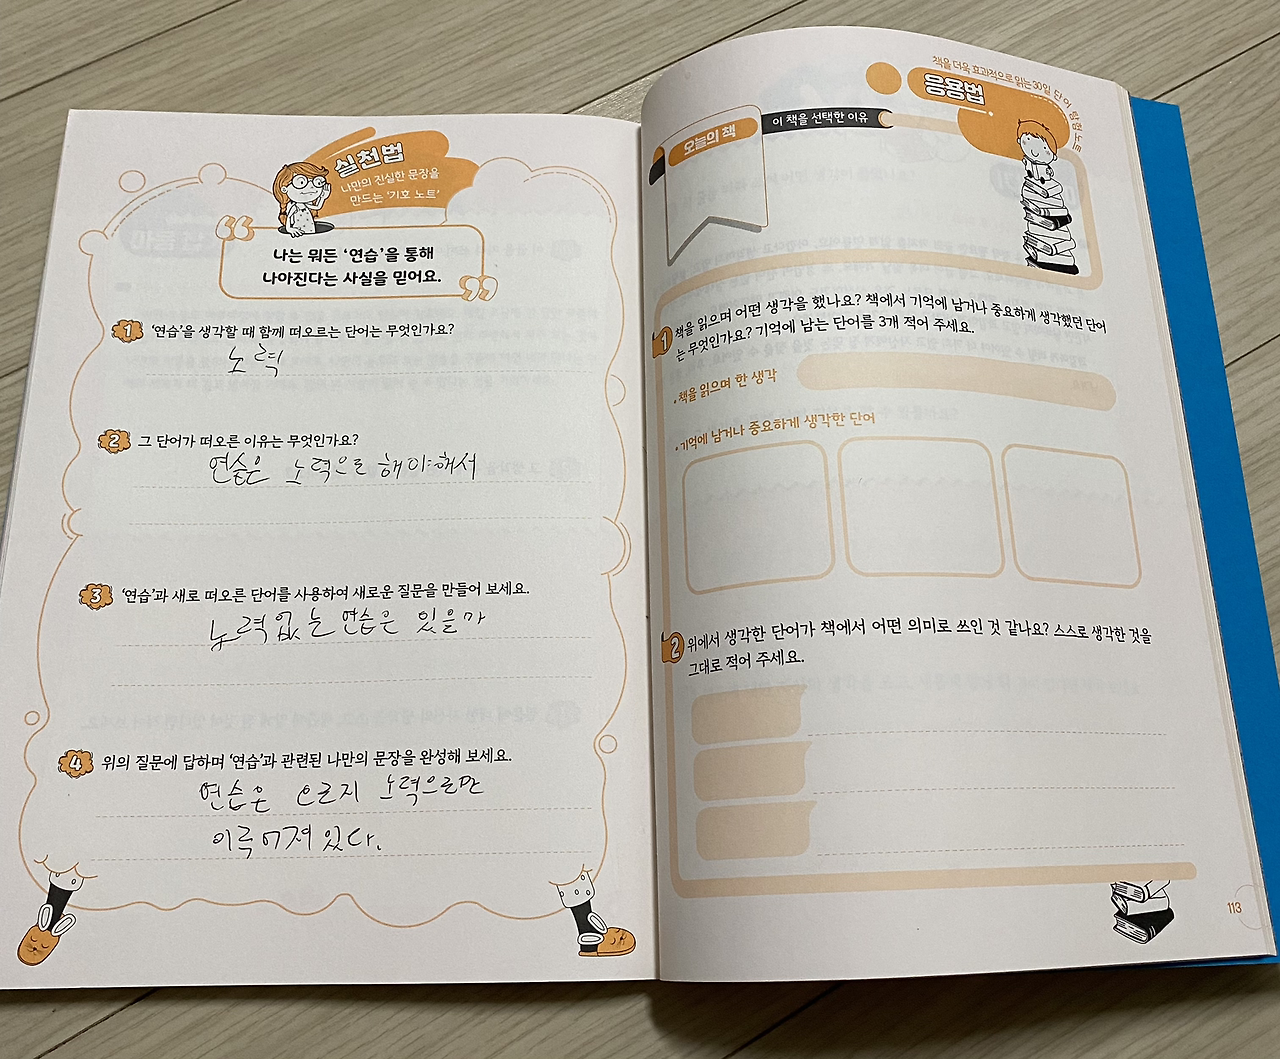 실천법
나만의 진실한 문장을
만드는 '기호 노트'
나는 뭐든 '연습'을 통해
나아진다는 사실을 믿어요.
1 '연습'을 생각할 때 함께 떠오르는 단어는 무엇인가요?
노력
2 그 단어가 떠오른 이유는 무엇인가요?
연습은 노력으로 해야해서
3 '연습'과 새로 떠오른 단어를 사용하여 새로운 질문을 만들어 보세요.
노력없는 연습은 있을까
4 위의 질문에 답하며 '연습'과 관련된 나만의 문장을 완성해 보세요.
연습은 오로지 노력으로만
이루어져있다.
책을 더욱 효과적으로 읽는 30일 단어 탐험 노트
응용법
오늘의 책
이 책을 선택한 이유
1 책을 읽으며 어떤 생각을 했나요? 책에서 기억에 남거나 중요하게 생각했던 단어
는 무엇인가요? 기억에 남는 단어를 3개 적어 주세요.
• 책을 읽으며 한 생각
• 기억에 남거나 중요하게 생각한 단어
2 위에서 생각한 단어가 책에서 어떤 의미로 쓰인 것 같나요? 스스로 생각한 것을
그대로 적어 주세요.
113